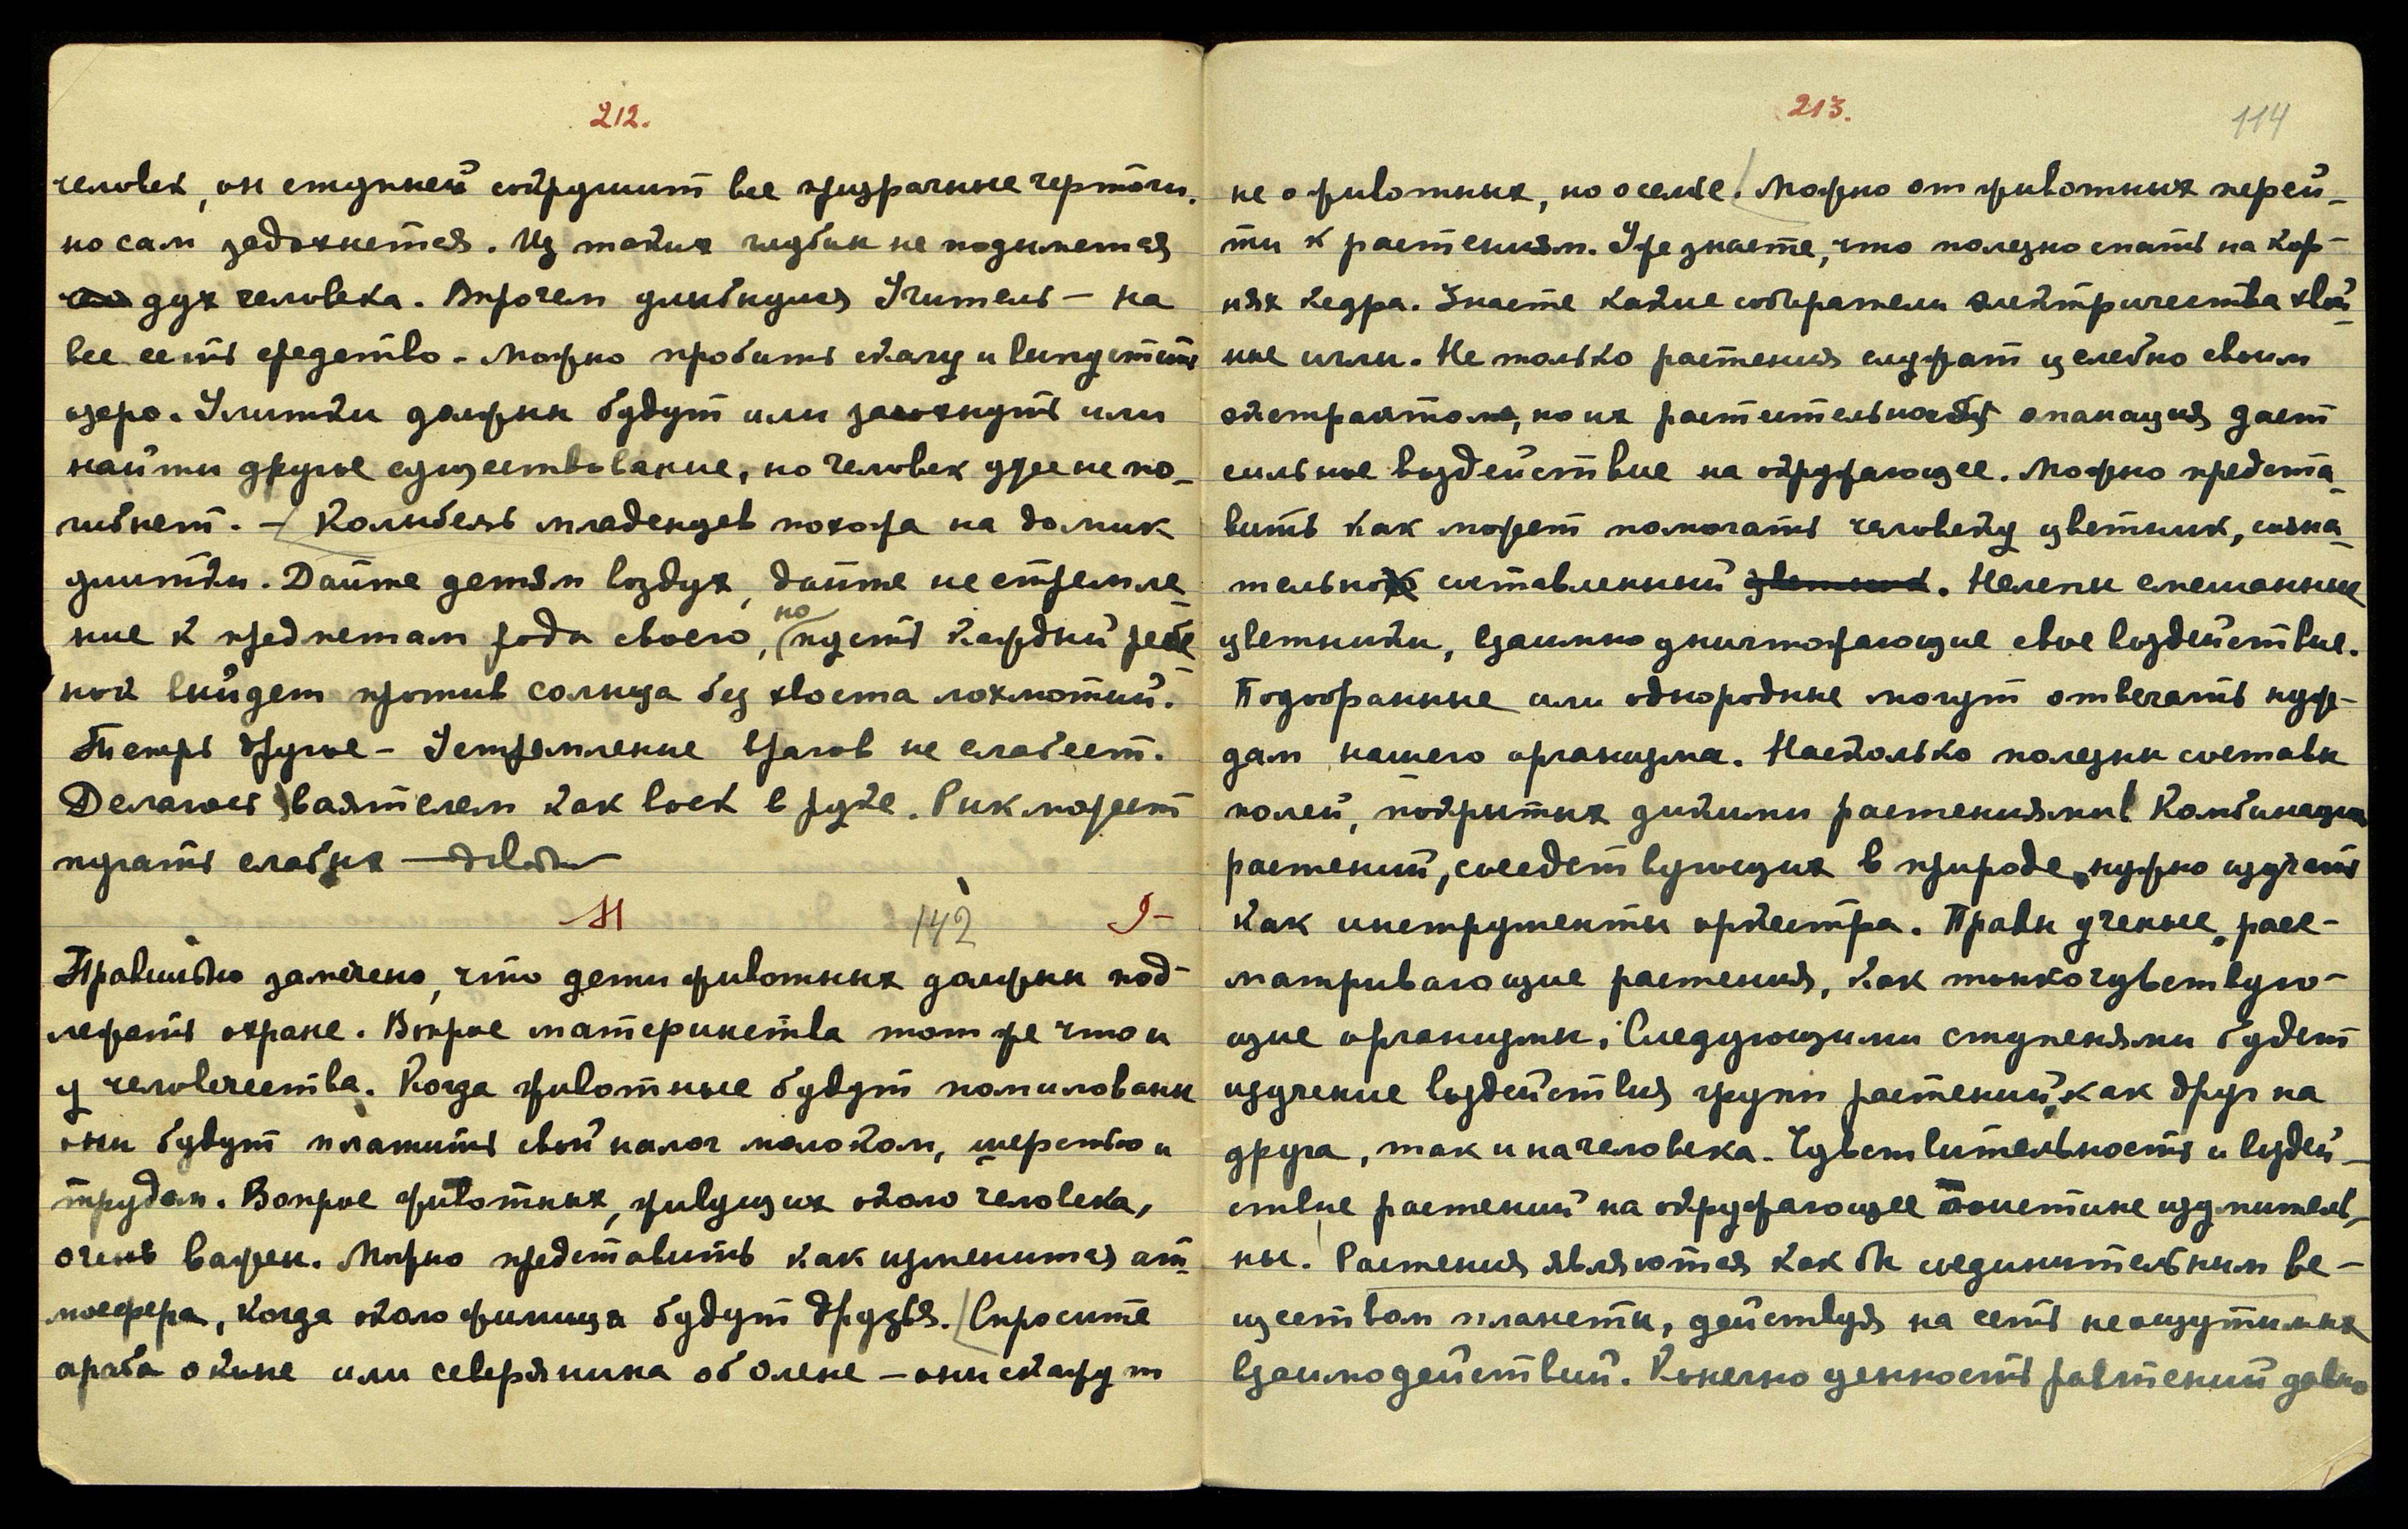 212.
человек, он ступней сокрушит все призрачные чертоги,
но сам задохнется. Из таких глубин не подымется
дух человека. Впрочем улыбнулся Учитель – на
все есть средство – можно пробить скалу и выпустить
озеро. Улитки должны будут или засохнуть или
найти другое существование, но человек уже не по-
гибнет. – Колыбель младенцев похожа на домик
улитки. Дайте детям воздух, дайте не стремле-
ние к предметам рода своего, но пусть каждый ребе-
нок выйдет против солнца без хвоста лохмотий.
Теперь другое – Устремление врагов не слабеет.
Делаюсь ваятелем как воск в руке. Рик может
пугать слабых —
H 142
Правильно замечено, что дети животных должны под-
лежать охране. Вопрос материнства тот же что и
у человечества. Когда животные будут помилованы
они будут платить свой налог молоком, шерстью и
трудом. Вопрос животных, живущих около человека,
очень важен. Можно представить как изменится ат-
мосфера, когда около жилища будут друзья. Спросите
араба о коне или северянина об олене – они скажут
213.
114
не о животных, но о семье. Можно от животных перей-
ти к растениям. Уже знаете, что полезно спать на кор-
нях кедра. Знаете какие собиратели электричества хвой-
ные иглы. Не только растения служат целебно своим
экстрактом, но их растительность эманация дает
сильное воздействие на окружающее. Можно предста-
вить как может помогать человеку цветник, созна-
тельно составленный цветник. Нелепы смешанные
цветники, взаимно уничтожающие свое воздействие.
Подобранные или однородные могут отвечать нуж-
дам нашего организма. Насколько полезны составы
полей, покрытых дикими растениями! Комбинации
растений, соседствующих в природе, нужно изучать
как инструменты оркестра. Правы ученые, расс-
матривающие растения, как тонкочувствую-
щие организмы; Следующими ступенями будет
изучение воздействия групп растений, как друг на
друга, так и на человека. Чувствительность и воздей-
ствие растений на окружающее поистине изумитель-
ны! Растения являются как бы соединительным ве-
ществом планеты, действуя на сеть неощутимых
взаимодействий. Конечно ценность растений давно